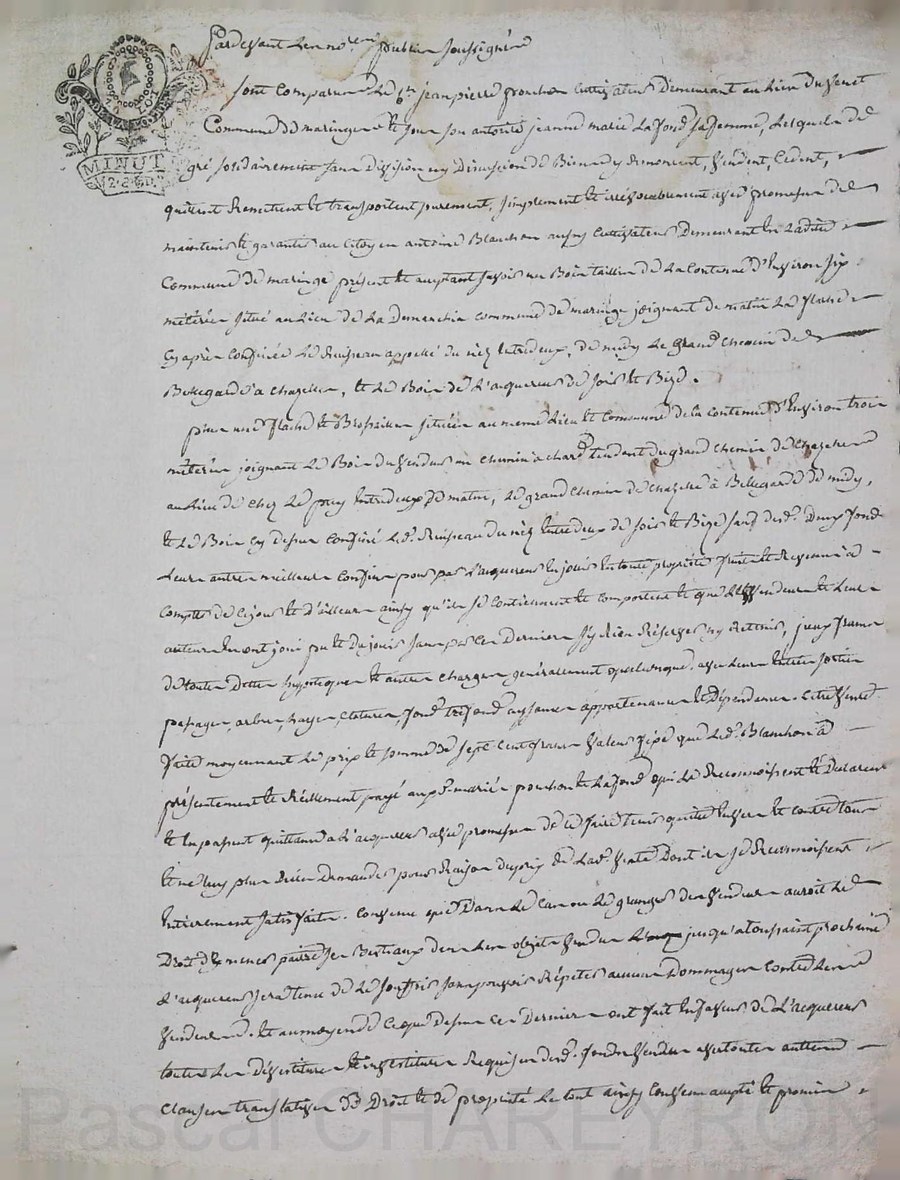 Pardevant les no.res publics soussignés
sont comparus le c.en jean pierre ponchon cultivateur demeurant au lieu du
Commune de maringe et sous son autorité jeanne marie Lafond sa femme, lesquels de
gré solidairement sans division ny discussion de Biens dy renoncent, vendent, cedent,
quittent Remettent et transportent purement, simplement et irrévocablement avec promesse de
maintenir et garantir au Citoyen antoine Blanchon aussy cultivateur demeurant en Ladite
Commune de maringe présent et acceptant savoir un Bois taillis de La Contenue d'Environ six
métérées situé au Lieu de La Demarchia commune de maringe joignant de matin La flache
Cy après confinée Le Ruisseau appellé du entredeux, de midy Le Grand chemin de
Bellegarde à chazelles, et Le Bois de L'aquereur de soir et Bize.
plus une flache et Brossailles située au même Lieu et Commune de la contenue d'Environ trois
métérées joignant Le Bois du un chemin à char tendant du grand chemin de chazelles
au Lieu de chez Le puy entredeux de matin, Le grand chemin de chazelles à Bellegarde de midy,
et Le Bois cy dessus confiné Led. Ruisseau du entredeux de soir et Bize sauf desd. Deux fonds
Leurs autres meilleurs confins pour par L'acquereur en jouir en toute propriété fruits et Revenus à
Compter de ce jour et d'ailleurs ainsy qu'ils se contiennent et comportent et que Les vendeurs et Leurs
auteurs en ont joui pu et du jouir sans par ces Derniers s'y Rien Réserver ny Retenir, francs
de toutes dettes hypoteques et autres charges généralement quelconques, avec Leurs entrées sorties
passages, arbres, hayes, clotures, fonds trefonds aysances appartenances et Dépendances. Cette vente
faite moyennant Le prix et somme de sept Cent francs valeur fixe que Led. Blanchon a
présentement et Réellement payé aux d. mariés ponchon et Lafond qui Le Reconnoissent et Declarent
et En passent quittance à L'acquereur avec promesse de Le faire tenir quitte envers et contre tous
et ne luy plus Rien demander pour Raison du prix de Lad. vente Dont ils se Reconnoissent
Entierement satisfaits. Convenu que Dans Le Cas ou Le granger des vendeurs auroit Le
Droit de mener paitre ses Bestiaux dans Les objets vendus jusqu'a toussaint prochaine
L'acquereur sera tenu de Le souffrir sans pouvoir Répéter aucuns Dommages Contre Les
vendeurs. et au moyen de ce que dessus ces Derniers ont fait En faveur de L'acquereur
toutes Les dévestitures et investitures Requises desd. fonds vendus avec toutes autres
Clauses translatives de Droit et de propriété Le tout ainsy Convenu accepté et promis
MINUT
Pascal CHAREYRON